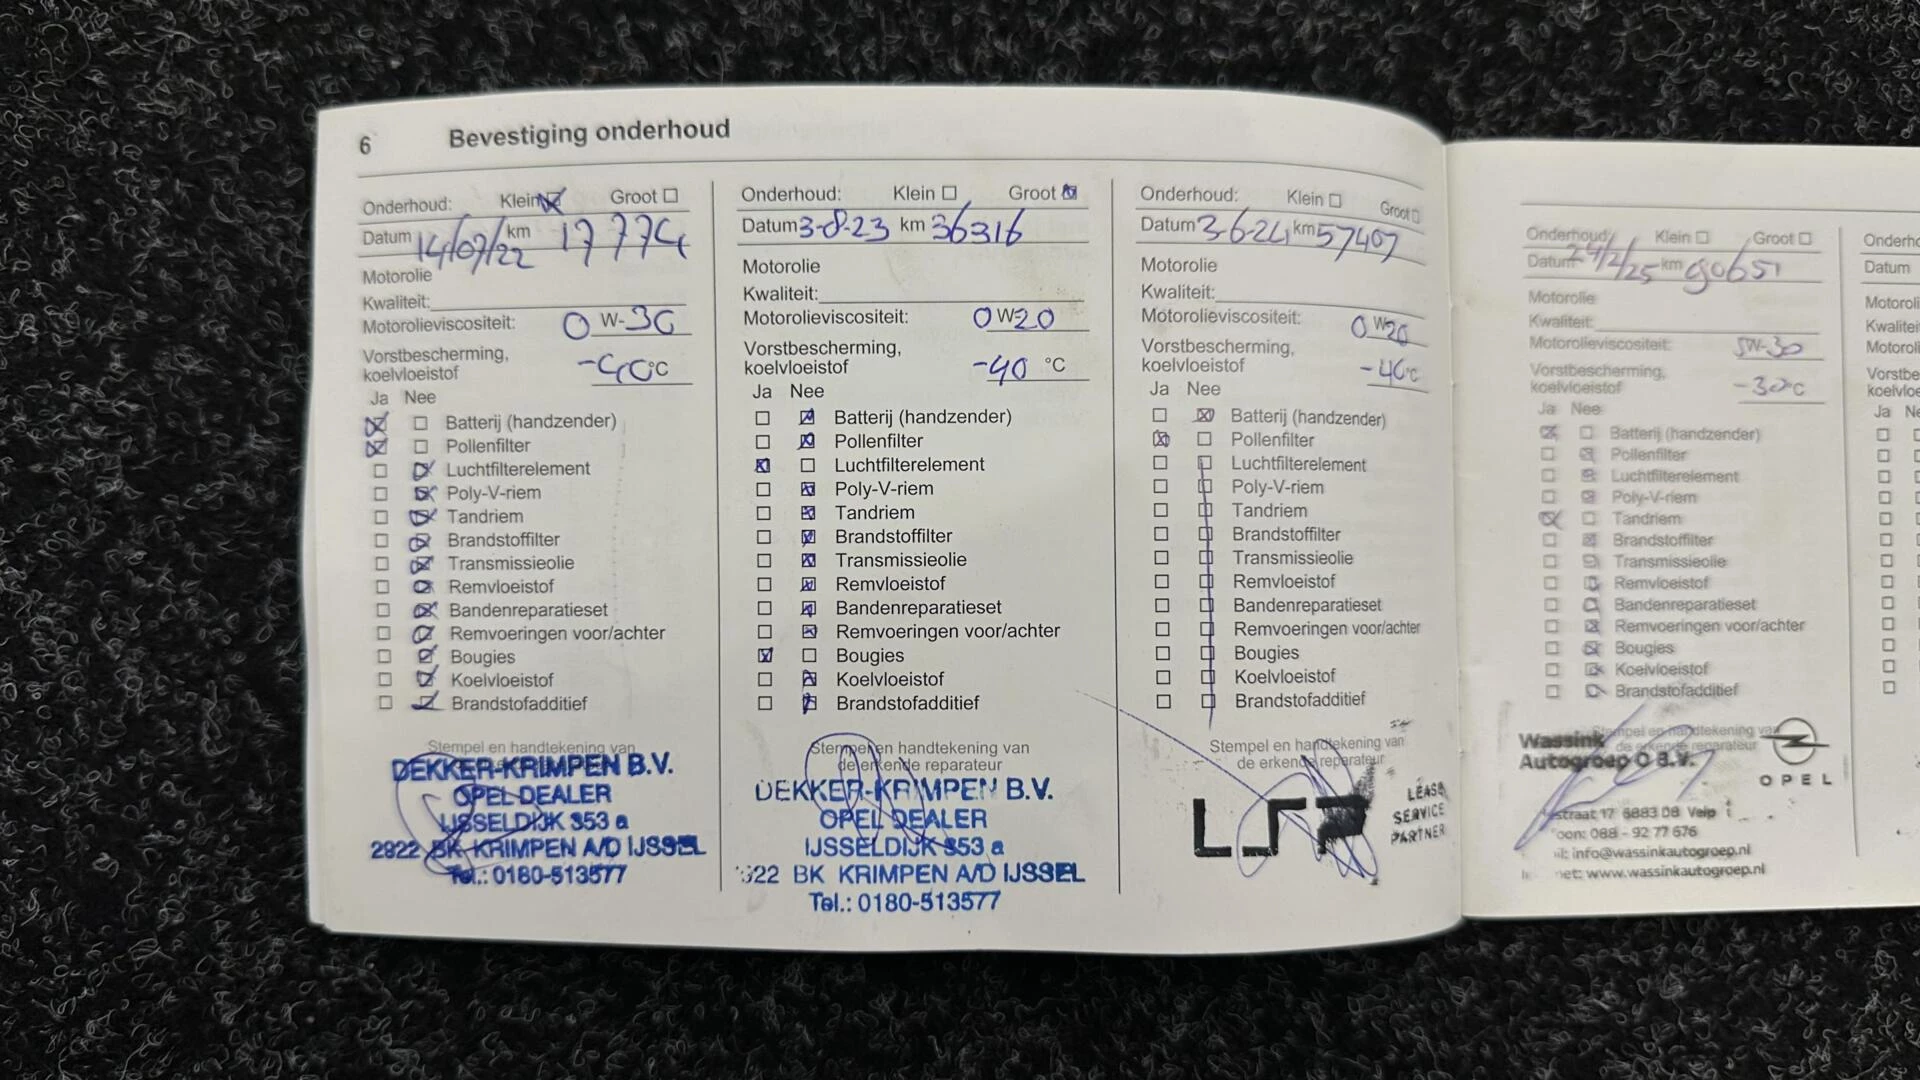 6 Bevestiging onderhoud
Onderhoud: Klein Groot
Datum 14/07/22 km 17774
Motorolie
Kwaliteit:
Motorolieviscositeit: 0 W-30
Vorstbescherming,
koelvloeistof -40°C
Ja Nee
Batterij (handzender)
Pollenfilter
Luchtfilterelement
Poly-V-riem
Tandriem
Brandstoffilter
Transmissieolie
Remvloeistof
Bandenreparatieset
Remvoeringen voor/achter
Bougies
Koelvloeistof
Brandstofadditief
Stempel en handtekening van
DEKKER-KRIMPEN B.V.
OPEL DEALER
IJSSELDIJK 353 a
2922 BK KRIMPEN A/D IJSSEL
Tel.: 0180-513577
Onderhoud: Klein Groot
Datum 3-8-23 km 36316
Motorolie
Kwaliteit:
Motorolieviscositeit: 0 W 20
Vorstbescherming,
koelvloeistof -40 °C
Ja Nee
Batterij (handzender)
Pollenfilter
Luchtfilterelement
Poly-V-riem
Tandriem
Brandstoffilter
Transmissieolie
Remvloeistof
Bandenreparatieset
Remvoeringen voor/achter
Bougies
Koelvloeistof
Brandstofadditief
Stempel en handtekening van
de erkende reparateur
DEKKER-KRIMPEN B.V.
OPEL DEALER
IJSSELDIJK 353 a
922 BK KRIMPEN A/D IJSSEL
Tel.: 0180-513577
Onderhoud: Klein Groot
Datum 3-6-24 km 57407
Motorolie
Kwaliteit:
Motorolieviscositeit: 0 W 20
Vorstbescherming,
koelvloeistof -40°C
Ja Nee
Batterij (handzender)
Pollenfilter
Luchtfilterelement
Poly-V-riem
Tandriem
Brandstoffilter
Transmissieolie
Remvloeistof
Bandenreparatieset
Remvoeringen voor/achter
Bougies
Koelvloeistof
Brandstofadditief
Stempel en handtekening van
de erkende reparateur
LSP
LEASE
SERVICE
PARTNER
Onderhoud: Klein Groot
Datum 24/2/25 km 90651
Motorolie
Kwaliteit:
Motorolieviscositeit: 5W-30
Vorstbescherming,
koelvloeistof -30°C
Ja Nee
Batterij (handzender)
Pollenfilter
Luchtfilterelement
Poly-V-riem
Tandriem
Brandstoffilter
Transmissieolie
Remvloeistof
Bandenreparatieset
Remvoeringen voor/achter
Bougies
Koelvloeistof
Brandstofadditief
Stempel en handtekening van
de erkende reparateur
Wassink
Autogroep O B.V.
OPEL
straat 17 6883 DB Velp
oon: 088 - 92 77 676
il: info@wassinkautogroep.nl
net: www.wassinkautogroep.nl
Datum
Ja